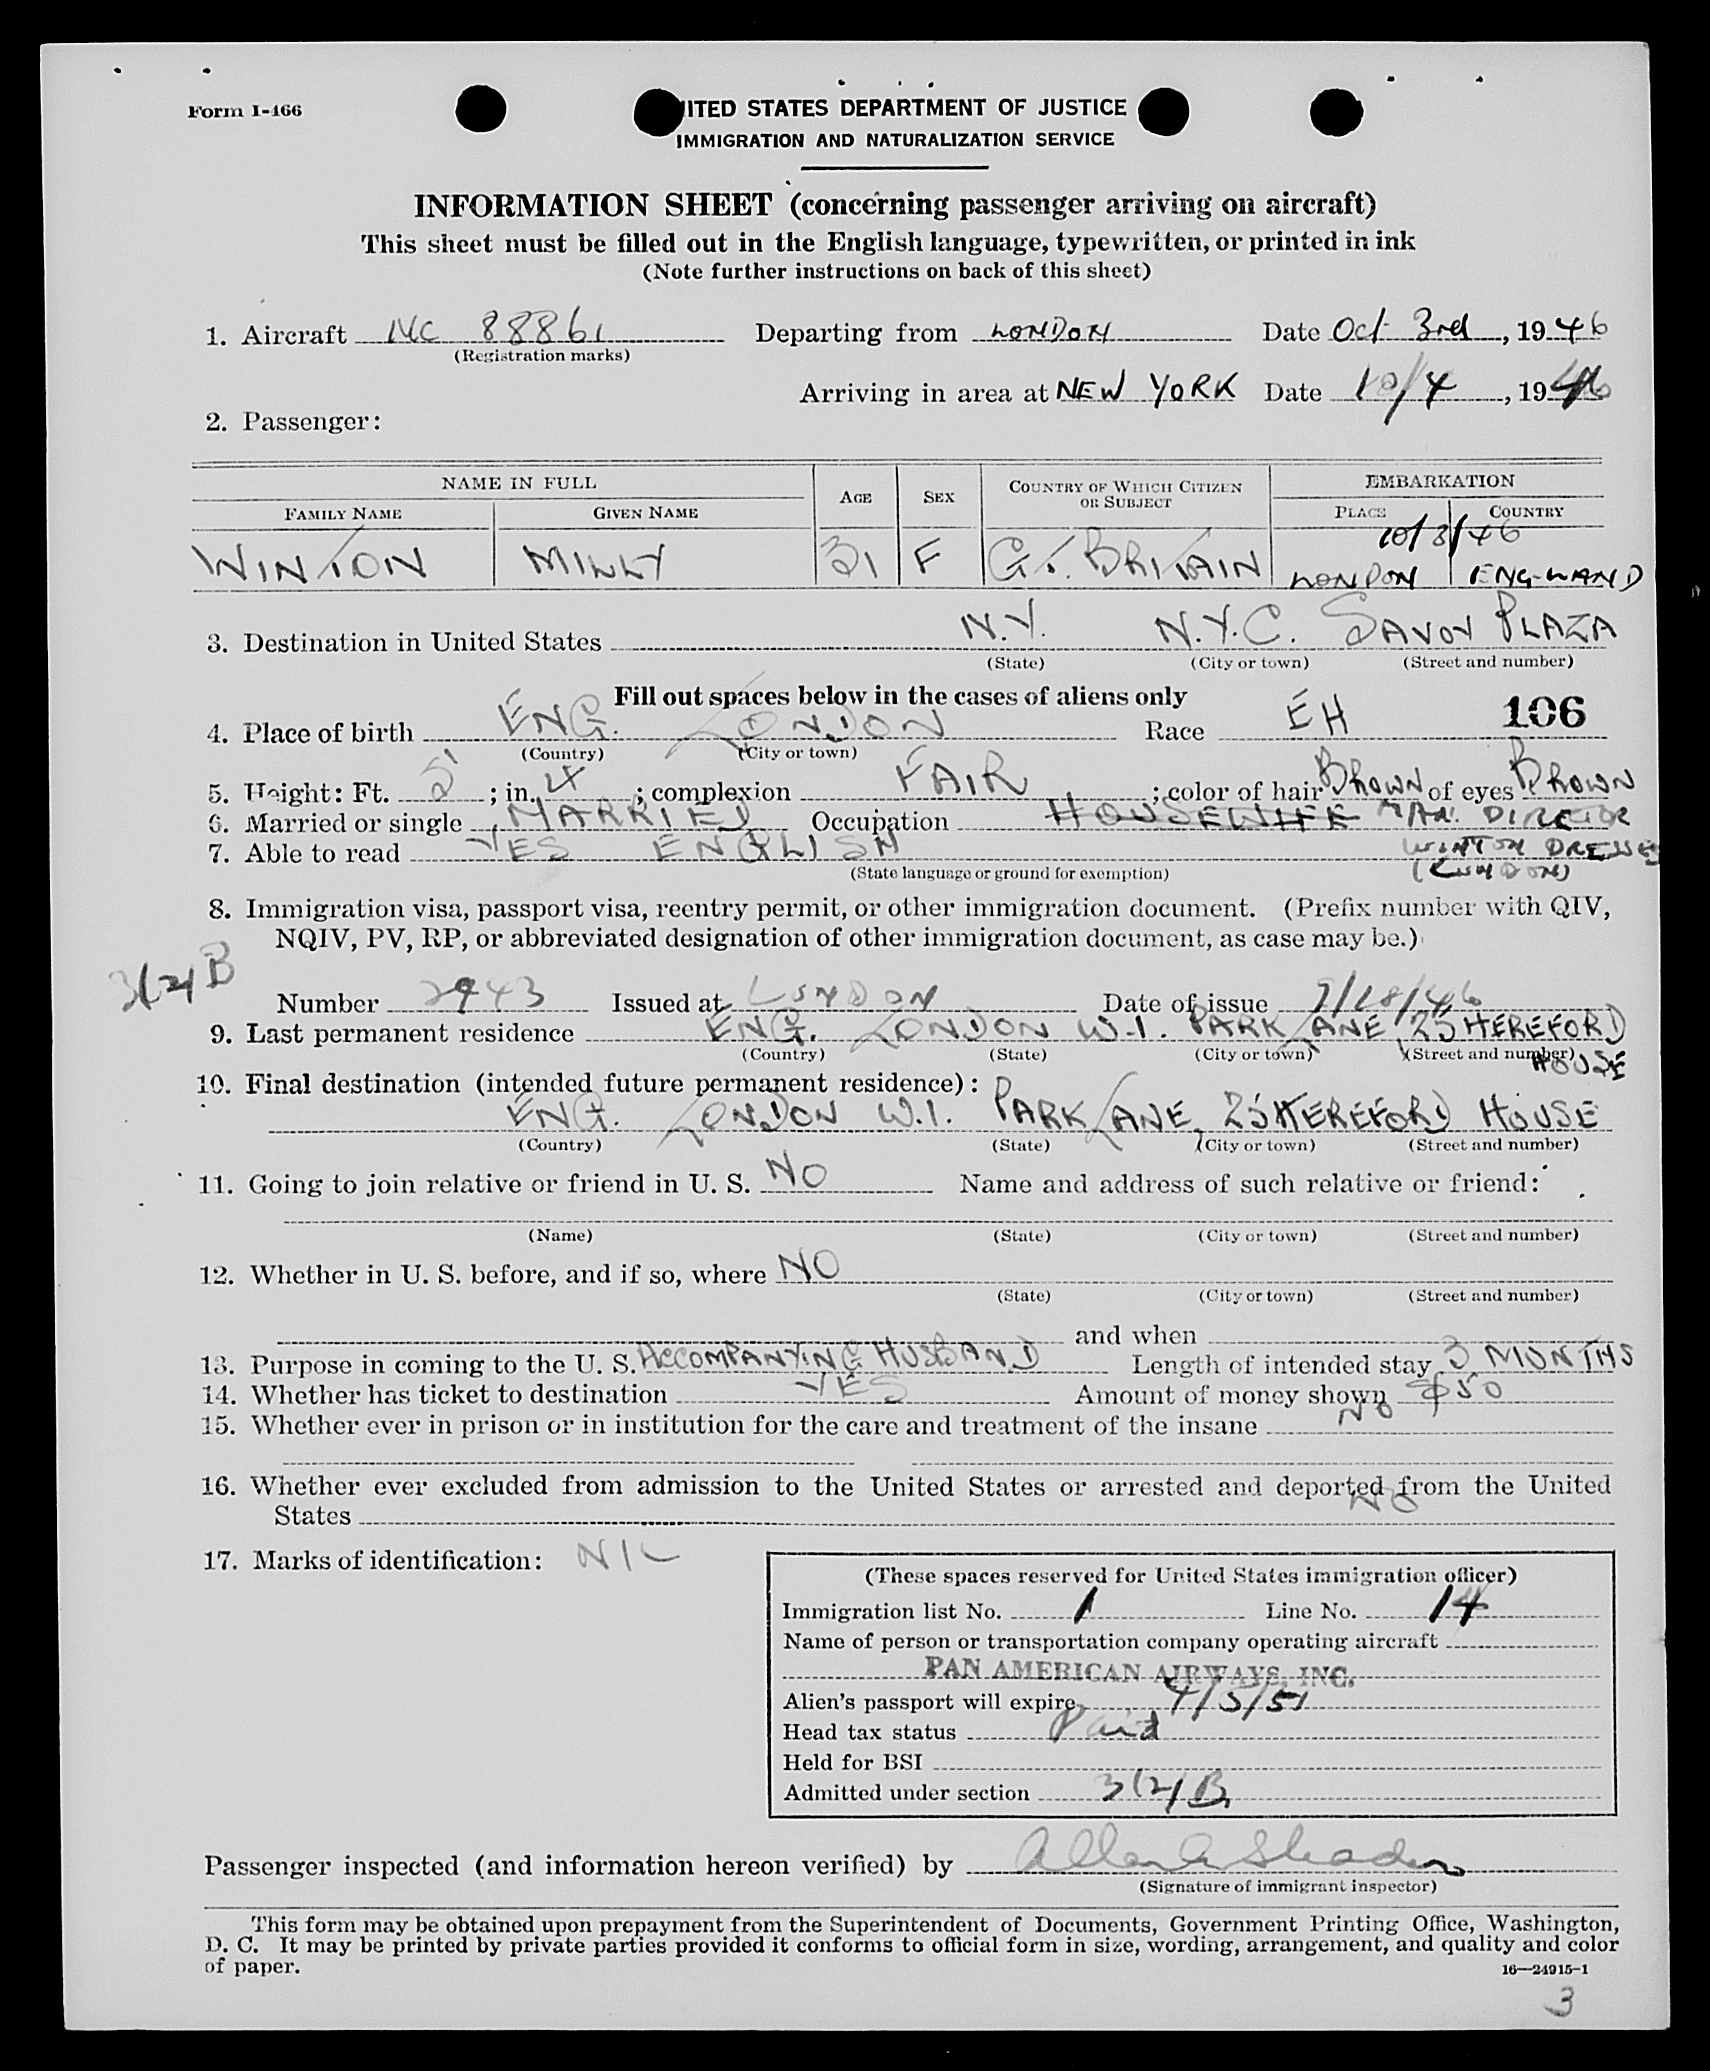 Form I-466
UNITED STATES DEPARTMENT OF JUSTICE
IMMIGRATION AND NATURALIZATION SERVICE
INFORMATION SHEET (concerning passenger arriving on aircraft)
This sheet must be filled out in the English language, typewritten, or printed in ink
(Note further instructions on back of this sheet)
1. Aircraft NC 88861 Departing from LONDON Date Oct 3rd, 1946
(Registration marks)
Arriving in area at NEW YORK Date 10/4, 1946
2. Passenger:
NAME IN FULL AGE SEX COUNTRY OF WHICH CITIZEN OR SUBJECT EMBARKATION
FAMILY NAME GIVEN NAME PLACE COUNTRY
10/3/46
WINTON MILLY 31 F GT. BRITAIN LONDON ENGLAND
3. Destination in United States N.Y. N.Y.C. SAVOY PLAZA
(State) (City or town) (Street and number)
Fill out spaces below in the cases of aliens only
106
4. Place of birth ENG. LONDON Race EH
(Country) (City or town)
5. Height: Ft. 5 ; in. 4 ; complexion FAIR ; color of hair BROWN of eyes BROWN
6. Married or single MARRIED Occupation HOUSEWIFE MAN. DIRECTOR
7. Able to read YES ENGLISH WINTON DRESSES
(State language or ground for exemption) (LONDON)
8. Immigration visa, passport visa, reentry permit, or other immigration document. (Prefix number with QIV,
NQIV, PV, RP, or abbreviated designation of other immigration document, as case may be.)
3(2)B
Number 2943 Issued at LONDON Date of issue 7/18/46
9. Last permanent residence ENG. LONDON W.1. PARK LANE, 25 HEREFORD
(Country) (State) (City or town) (Street and number) HOUSE
10. Final destination (intended future permanent residence):
ENG. LONDON W.1. PARK LANE, 25 HEREFORD HOUSE
(Country) (State) (City or town) (Street and number)
11. Going to join relative or friend in U. S. NO Name and address of such relative or friend:
(Name) (State) (City or town) (Street and number)
12. Whether in U. S. before, and if so, where NO
(State) (City or town) (Street and number)
and when
13. Purpose in coming to the U. S. ACCOMPANYING HUSBAND Length of intended stay 3 MONTHS
14. Whether has ticket to destination YES Amount of money shown $50
15. Whether ever in prison or in institution for the care and treatment of the insane NO
16. Whether ever excluded from admission to the United States or arrested and deported from the United
States NO
17. Marks of identification: NIL
(These spaces reserved for United States immigration officer)
Immigration list No. 1 Line No. 14
Name of person or transportation company operating aircraft
PAN AMERICAN AIRWAYS, INC.
Alien's passport will expire 4/5/51
Head tax status Paid
Held for BSI
Admitted under section 3(2)B
Passenger inspected (and information hereon verified) by
(Signature of immigrant inspector)
This form may be obtained upon prepayment from the Superintendent of Documents, Government Printing Office, Washington,
D. C. It may be printed by private parties provided it conforms to official form in size, wording, arrangement, and quality and color
of paper.
16—24915-1
3